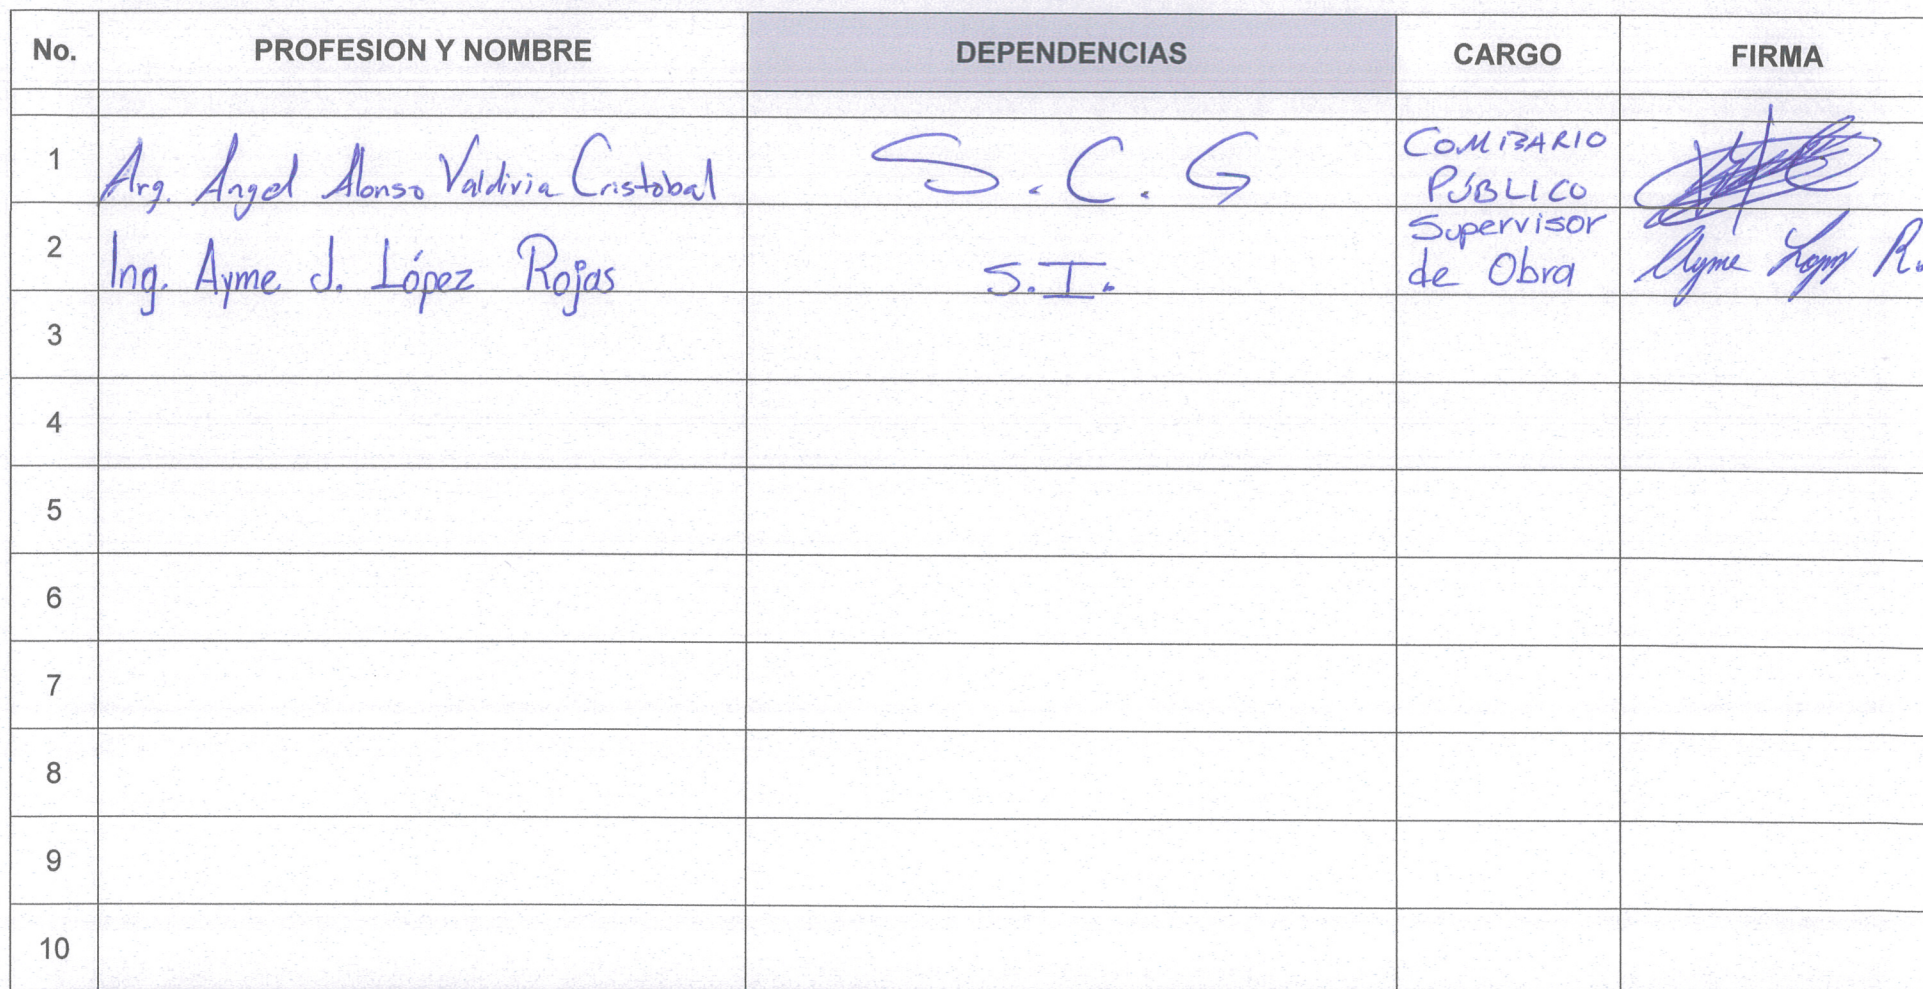 No. PROFESION Y NOMBRE DEPENDENCIAS CARGO FIRMA
1 Arq. Angel Alonso Valdivia Cristobal S.C.G COMISARIO PÚBLICO
2 Ing. Ayme J. López Rojas S.I. Supervisor de Obra Ayme Lopez R.
3
4
5
6
7
8
9
10